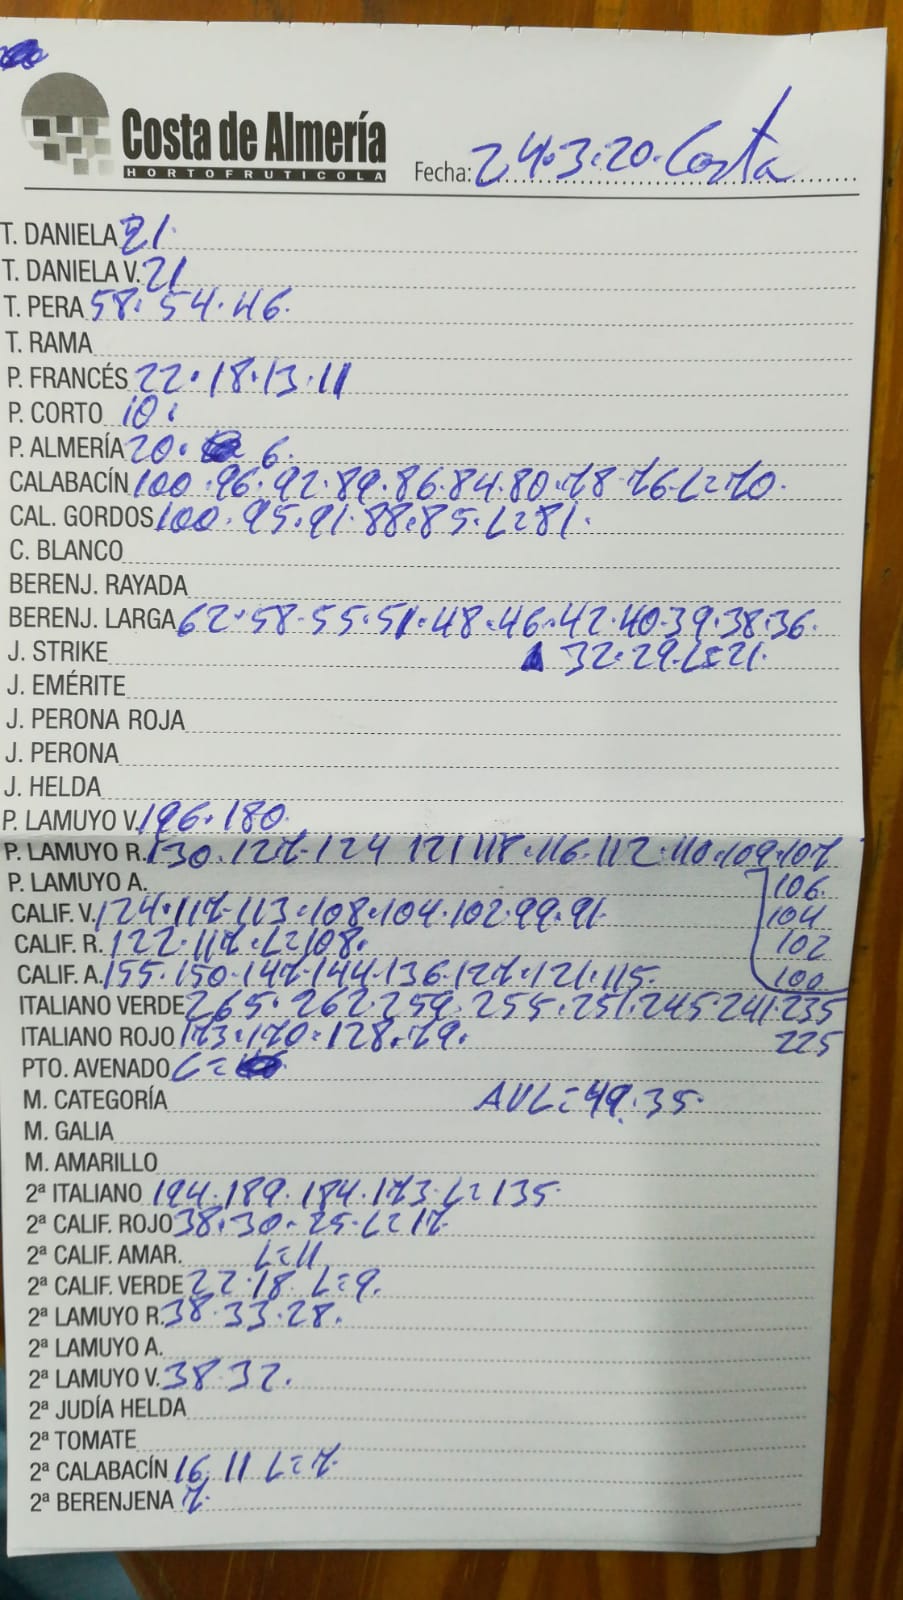 Costa de Almería
HORTOFRUTICOLA
Fecha: 24.3.20. Costa
T. DANIELA 21.
T. DANIELA V. 21
T. PERA 58. 54. 46.
T. RAMA
P. FRANCÉS 22. 18. 13. 11
P. CORTO 10.
P. ALMERÍA 20. 6.
CALABACÍN 100. 96. 92. 89. 86. 84. 80. 78. 76. L=70.
CAL. GORDOS 100. 95. 91. 88. 85. L=81.
C. BLANCO
BERENJ. RAYADA
BERENJ. LARGA 62. 58. 55. 51. 48. 46. 42. 40. 39. 38. 36.
J. STRIKE 32. 29. L=21.
J. EMÉRITE
J. PERONA ROJA
J. PERONA
J. HELDA
P. LAMUYO V. 196. 180.
P. LAMUYO R. 130. 127. 124 121 118. 116. 112. 110. 109. 107
P. LAMUYO A. 106.
CALIF. V. 124. 117. 113. 108. 104. 102. 99. 91. 104
CALIF. R. 122. 117. L=108. 102
CALIF. A. 155. 150. 147. 144. 136. 127. 121. 115. 100
ITALIANO VERDE 265. 262. 259. 255. 251. 245. 241. 235
ITALIANO ROJO 173. 170. 128. 79. 225
PTO. AVENADO L=
M. CATEGORÍA AVL=49. 35.
M. GALIA
M. AMARILLO
2ª ITALIANO 194. 189. 184. 173. L=135.
2ª CALIF. ROJO 38. 30. 25. L=17
2ª CALIF. AMAR. L=11
2ª CALIF. VERDE 22. 18. L=9.
2ª LAMUYO R. 38 33. 28.
2ª LAMUYO A.
2ª LAMUYO V. 38 32.
2ª JUDÍA HELDA
2ª TOMATE
2ª CALABACÍN 16. 11 L=7.
2ª BERENJENA 7.